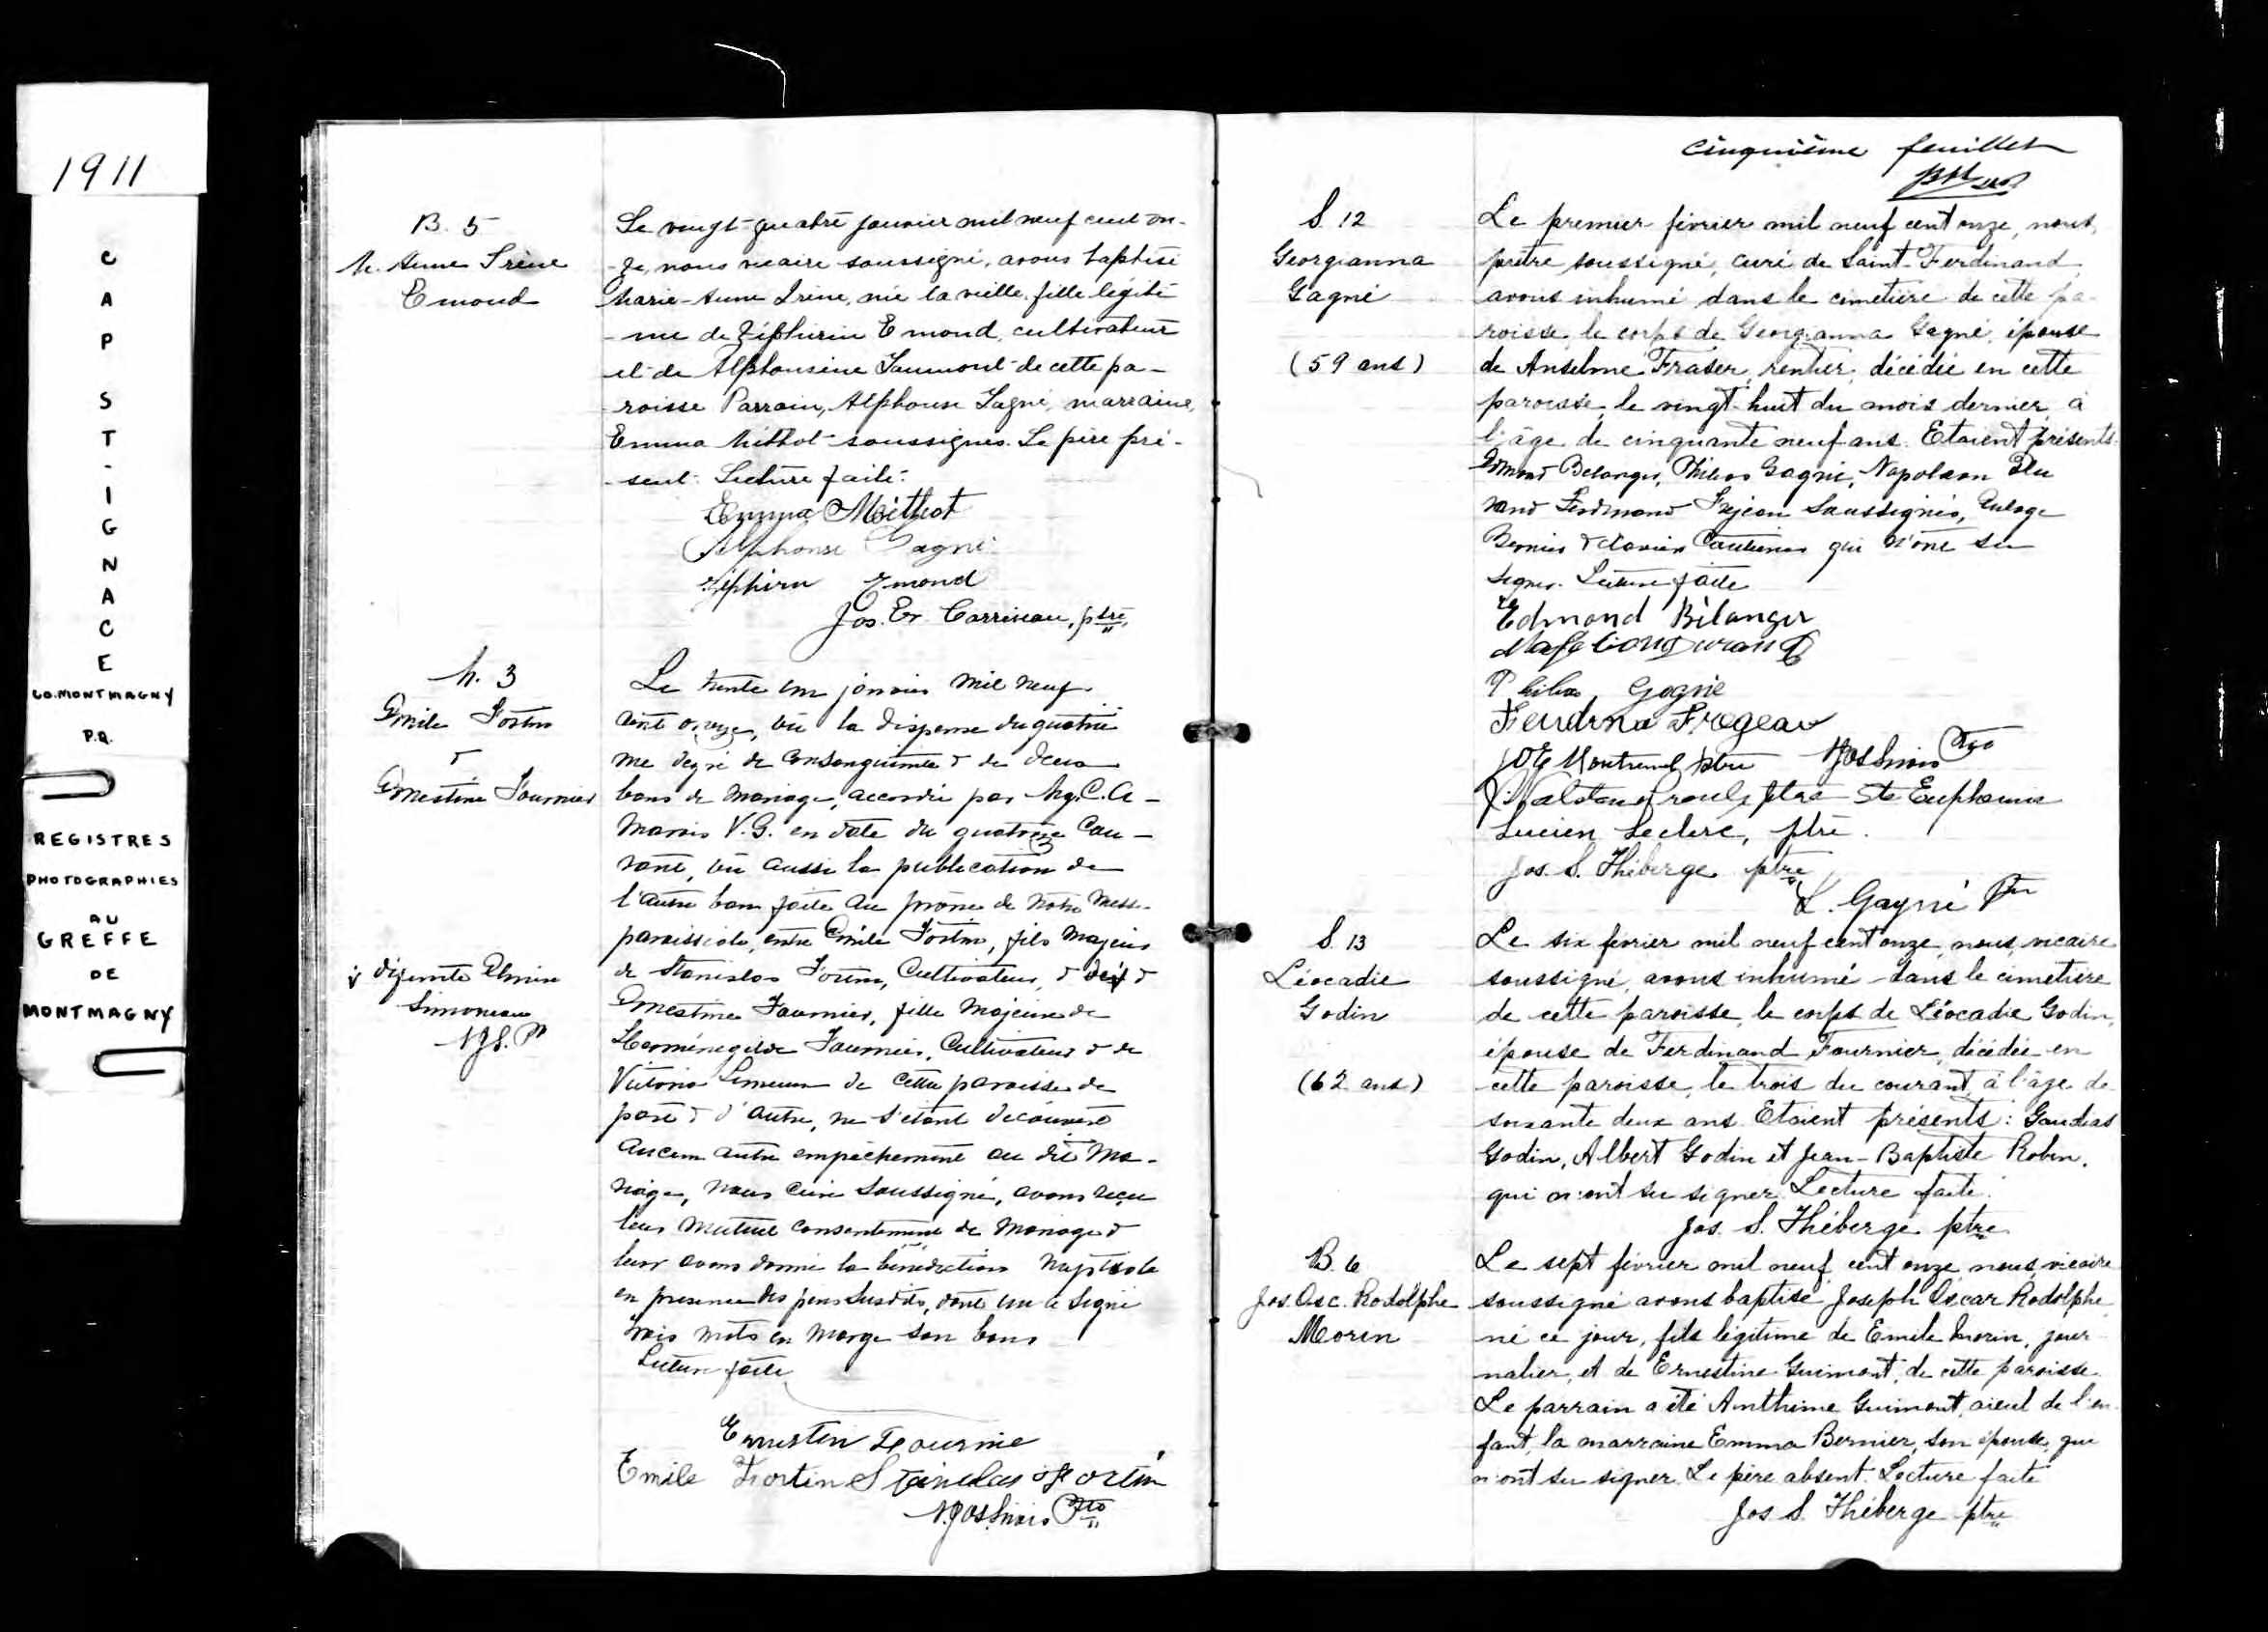 1911
CAP ST-IGNACE
CO. MONTMAGNY
P.Q.
REGISTRES
PHOTOGRAPHIES
AU
GREFFE
DE
MONTMAGNY
B. 5
M. Anne Irène
Emond
Le vingt-quatre janvier mil neuf cent on-
-ze, nous vicaire soussigné, avons baptisé
Marie-Anne Irène, née la veille, fille légiti-
-me de Zéphirin Emond, cultivateur
et de Alphonsine Gaumont de cette pa-
-roisse Parrain, Alphonse Gagné, marraine,
Emma Méthot soussignés. Le père pré-
-sent. Lecture faite.
Emma Méithot
Alphonse Gagné
Zéphirin Emond
Jos. Er. Carrineau, ptre
M. 3
Emile Fortin
&
Ernestine Fournier
Le trente un janvier mil neuf
cent onze, vu la dispense du quatriè
me degré de consanguinité & de deux
bans de mariage, accordée par Mgr. C. A-
Marois V. G. en date du quatorze cou-
rant, vu aussi la publication de
l'autre ban faite au prône de notre messe
paroissiale, entre Emile Fortin, fils majeur
de Stanislas Fortin, Cultivateur, & de &
Ernestine Fournier, fille majeure de
Herménégilde Fournier, Cultivateur & de
Victoria Lemieux de cette paroisse de
part & d'autre, ne s'étant découvert
aucun autre empêchement au dit ma-
riage, nous curé soussigné, avons reçu
leur mutuel consentement de mariage &
leur avons donné la bénédiction nuptiale
en présence des pères susdits, dont un a signé
trois mots en marge sont bons
Lecture faite
défunte Elmire
Simoneau
N.J.S. Ptre
Ernestin Fournie
Emile Fortin Stanislas Fortin
N. Jos. Sirois Ptre
cinquième feuillet
S. 12
Georgianna
Gagné
(59 ans)
Le premier février mil neuf cent onze, nous,
prêtre soussigné, curé de Saint-Ferdinand,
avons inhumé dans le cimetière de cette pa-
roisse, le corps de Georgianna Gagné, épouse
de Anselme Fraser, rentier, décédée en cette
paroisse, le vingt-huit du mois dernier, à
l'âge de cinquante neuf ans. Etaient présents
Edmond Belanger, Phileas Gagné, Napoléon Du
rand Ferdinand Frejeau Soussignés, Euloge
Bernier & Xavier Cauchon qui n'ont su
signer. Lecture faite
Edmond Bélanger
Napoléon Durand
Phileas Gagné
Ferdina Fregeau
J O E Montreuil ptre N Jos Sirois Ptre
Proulx ptre Ste Euphémie
Lucien Leclerc, ptre.
Jos. S. Théberge ptre
L. Gagné Ptre
S. 13
Léocadie
Godin
(62 ans)
Le six février mil neuf cent onze, nous, vicaire
soussigné, avons inhumé dans le cimetière
de cette paroisse, le corps de Léocadie Godin,
épouse de Ferdinand Fournier, décédée en
cette paroisse, le trois du courant, à l'âge de
soixante deux ans. Etaient présents: Gaudias
Godin, Albert Godin et Jean-Baptiste Robin,
qui n'ont su signer. Lecture faite.
Jos. S. Théberge ptre
B. 6
Jos. Osc. Rodolphe
Morin
Le sept février mil neuf cent onze, nous, vicaire
soussigné avons baptisé Joseph Oscar Rodolphe,
né ce jour, fils légitime de Emile Morin, jour-
nalier, et de Ernestine Guimont, de cette paroisse.
Le parrain a été Anthime Guimont, aïeul de l'en-
fant, la marraine Emma Bernier, son épouse, qui
n'ont su signer. Le père absent. Lecture faite
Jos. S. Théberge ptre